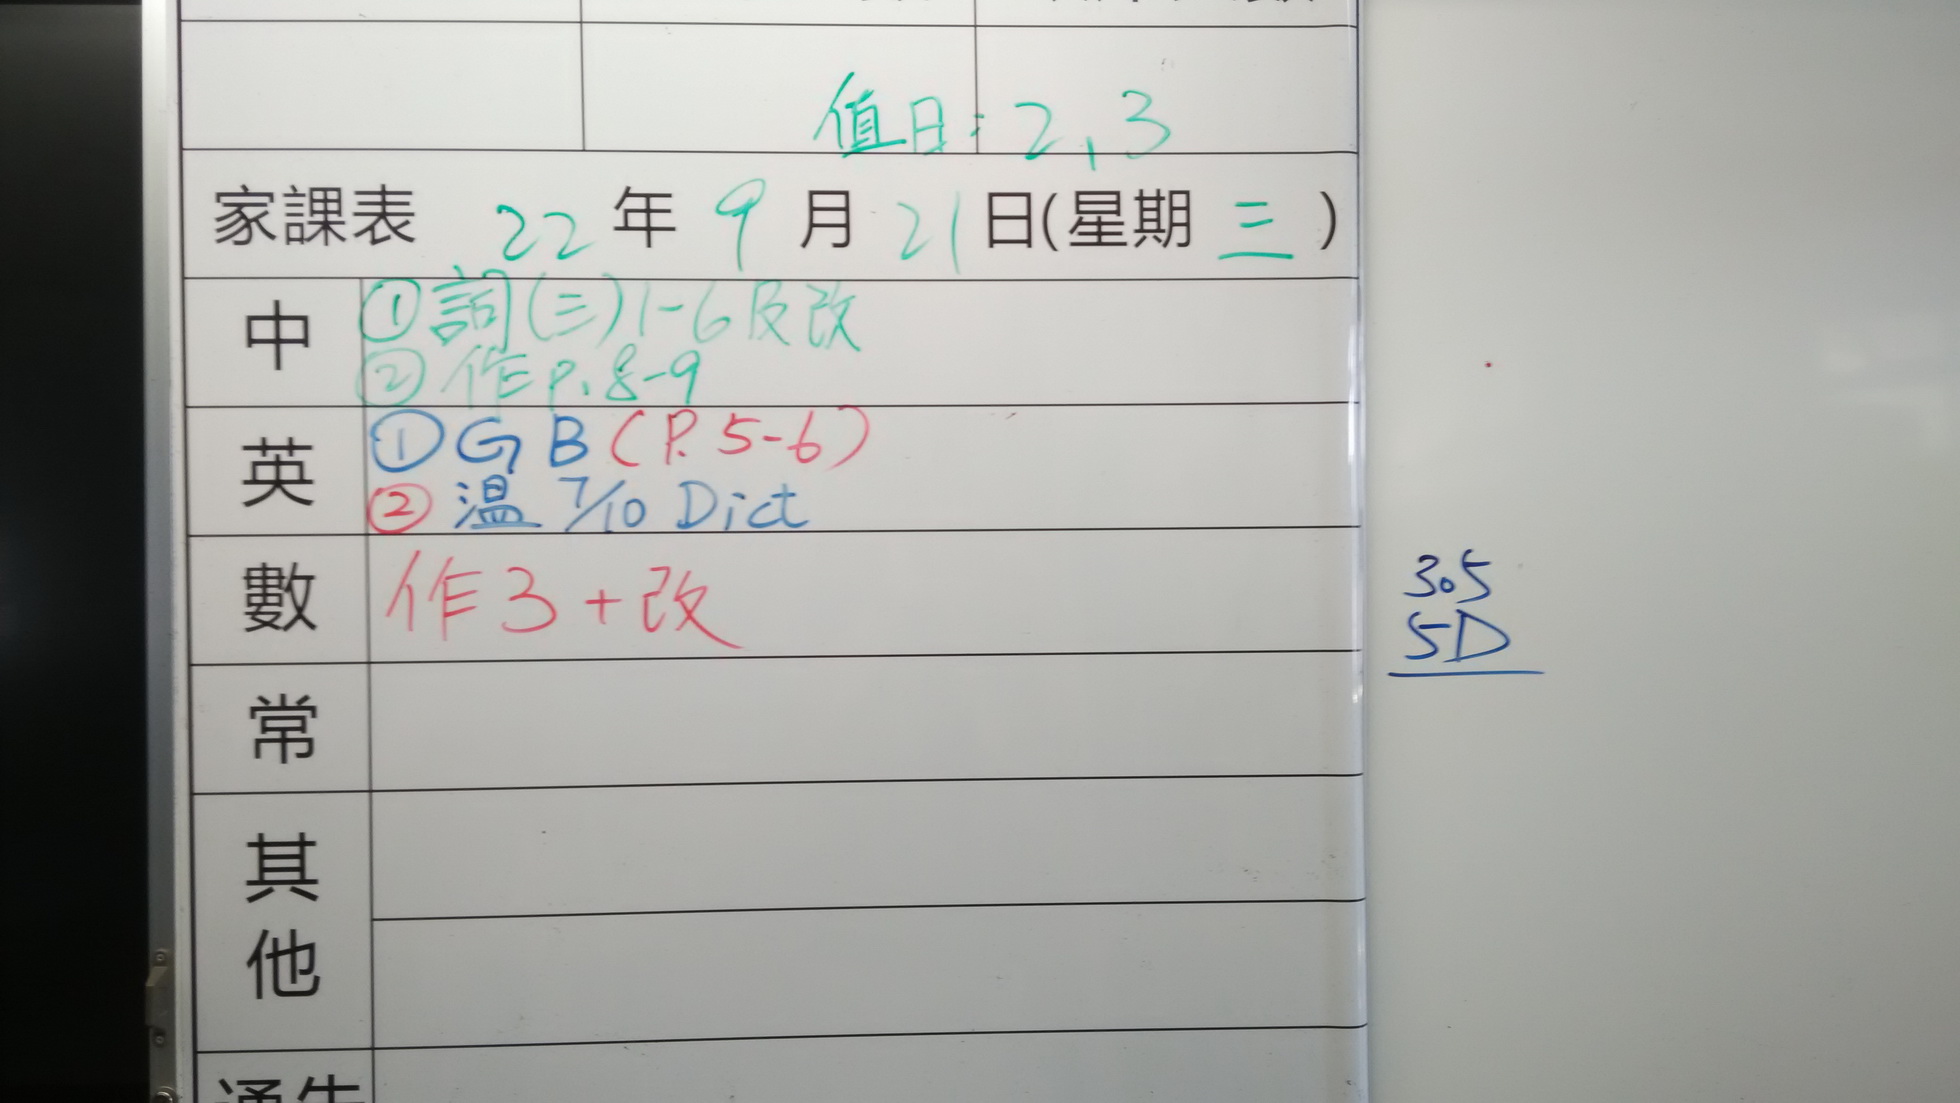 值日: 2, 3
家課表 22 年 9 月 21 日(星期 三 )
中
① 詞(三)1-6及改
② 作 P. 8-9
英
① GB (P. 5-6)
② 溫 7/10 Dict
數
作3+改
常
其他
通告
305
5D